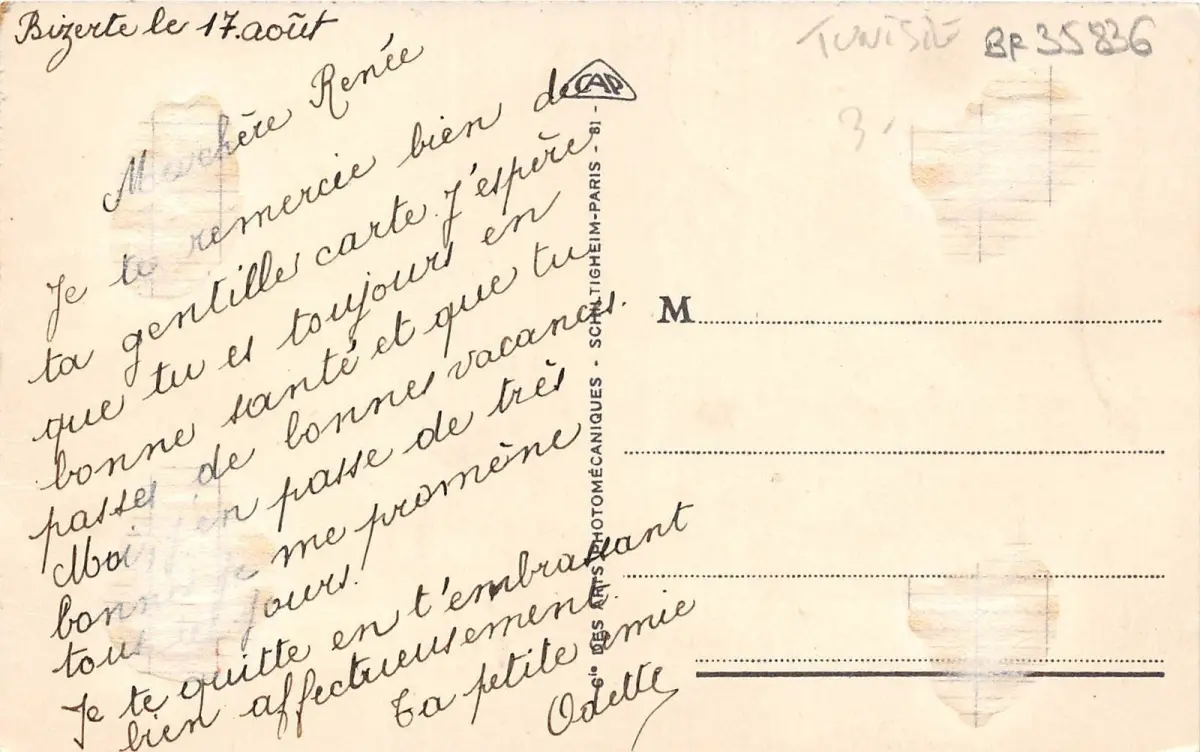 Bizerte le 17 août
Ma chère Renée
Je te remercie bien de
ta gentille carte J'espère
que tu es toujours en
bonne santé et que tu
passes de bonnes vacances.
Moi, j'en passe de très
bonnes je me promène
tous les jours.
Je te quitte en t'embrassant
bien affectueusement.
Ta petite amie
Odette
CAP
Cie DES ARTS PHOTOMÉCANIQUES - SCHILTIGHEIM-PARIS - 81 -
TUNISIE BF 35836
3.
M